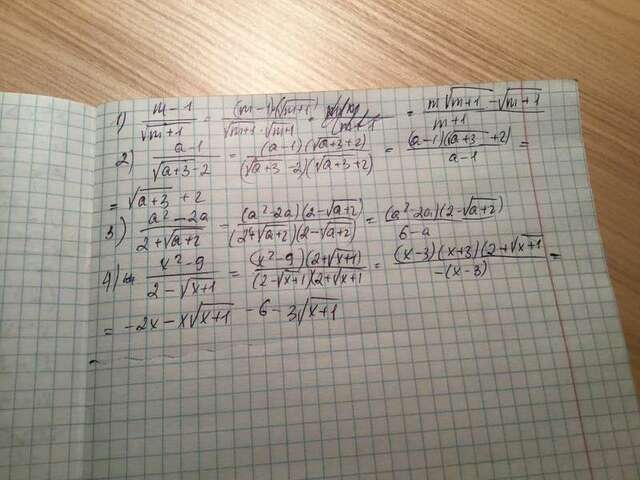 1) m-1/√m+1 = (m-1)(√m+1)/√m+1·√m+1 = = m√m+1 -√m+1/m+1
2) a-1/√a+3-2 = (a-1)(√a+3+2)/(√a+3-2)(√a+3+2) = (a-1)(√a+3+2)/a-1 =
= √a+3 + 2
3) a²-2a/2+√a+2 = (a²-2a)(2-√a+2)/(2+√a+2)(2-√a+2) = (a²-2a)(2-√a+2)/6-a
4) x²-9/2-√x+1 = (x²-9)(2+√x+1)/(2-√x+1)(2+√x+1 = (x-3)(x+3)(2+√x+1/-(x-3) =
= -2x-x√x+1 -6-3√x+1